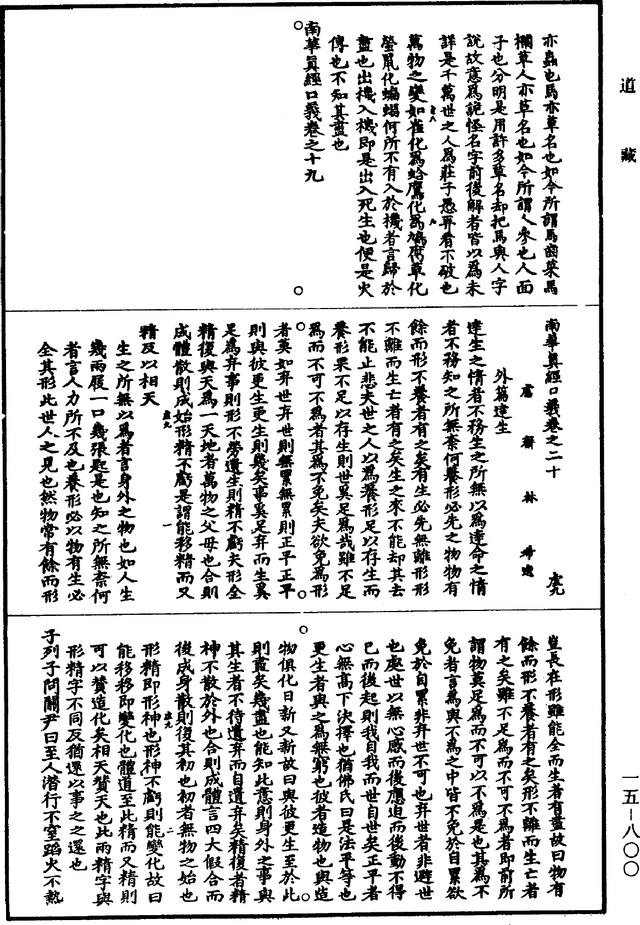 道藏
亦蟲也馬亦草名也如今所謂馬齒菜馬
欄草人亦草名也如今所謂人參也人面
子也分明是用許多草名却把馬與人字
說故意爲詭怪名字前後解者皆以爲未
詳是千萬世之人爲莊子愚弄看不破也
萬物之變如雀化爲蛤鷹化爲鳩腐草化
螢鼠化蝙蝠何所不有入於機者言歸於
盡也出機入機即是出入死生也便是火
傳也不知其盡也
南華眞經口義卷之十九
南華眞經口義卷之二十
鬳齋林希逸
外篇達生
達生之情者不務生之所無以爲達命之情
者不務知之所無奈何養形必先之物物有
餘而形不養者有之矣有生必先無離形形
不離而生亡者有之矣生之來不能却其去
不能止悲夫世之人以爲養形足以存生而
養形果不足以存生則世奚足爲哉雖不足
爲而不可不爲者其爲不免矣夫欲免爲形
者莫如弃世弃世則無累無累則正平正平
則與彼更生更生則幾矣事奚足弃而生奚
足爲弃事則形不勞遺生則精不虧夫形全
精復與天爲一天地者萬物之父母也合則
成體散則成始形精不虧是謂能移精而又
精反以相天
生之所無以爲者言身外之物也如人生
幾兩屐一口幾張匙是也知之所無奈何
者言人力所不及也養形必以物有生必
全其形此世人之見也然物常有餘而形
豈長在形雖能全而生者有盡故曰物有
餘而形不養者有之矣形不離而生亡者
有之矣雖不足爲而不可不爲者即前所
謂物莫足爲而不可以不爲是也其爲不
免者言爲與不爲之中皆不免於自累欲
免於自累非弃世不可也弃世者非避世
也處世以無心感而後應迫而後動不得
已而後起則我自我而世自世矣正平者
心無高下決擇也猶佛氏曰是法平等也
更生者與之爲無窮也彼者造物也與造
物俱化日新又新故曰與彼更生至於此
則盡矣幾盡也能知此意則身外之事與
其生者不待遺弃而自遺弃矣精復者精
神不散於外也合則成體言四大假合而
後成身散則復其初也初者無物之始也
形精即形神也形神不虧則能變化故曰
能移移即變化也體道至此精而又精則
可以贊造化矣相天贊天也此兩精字與
形精字不同反猶還以事之之還也
子列子問關尹曰至人潛行不窒蹈火不熱
一五-八〇〇